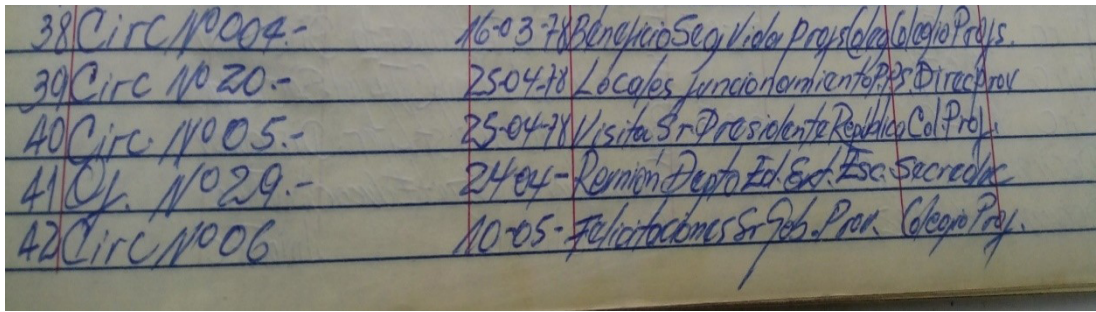 38 Circ Nº 004.- 16-03-78 Beneficio Seg Vida Profs Coleg Colegio Profs.
39 Circ Nº 20.- 25-04-78 Locales funcionamiento Direcprov
40 Circ Nº 05.- 25-04-78 Visita Sr. Presidente República Col. Prof.
41 Of. Nº 29.- 24-04- Reunión Depto Ed. Ext. Esc. Secreduc
42 Circ Nº 06 10-05- Felicitaciones Sr Gob. Prov. Colegio Prof.